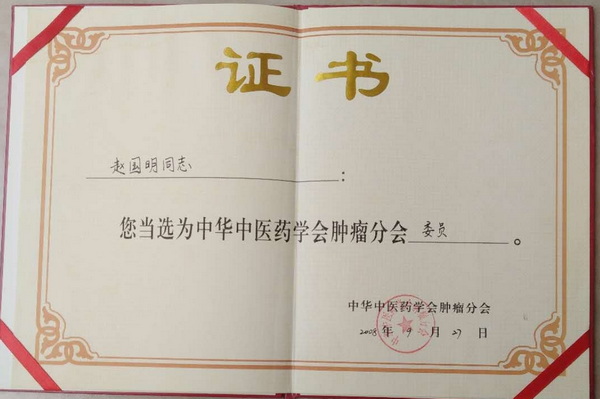 证书
赵国明同志：
您当选为中华中医药学会肿瘤分会委员。
中华中医药学会肿瘤分会
2008年 月27日